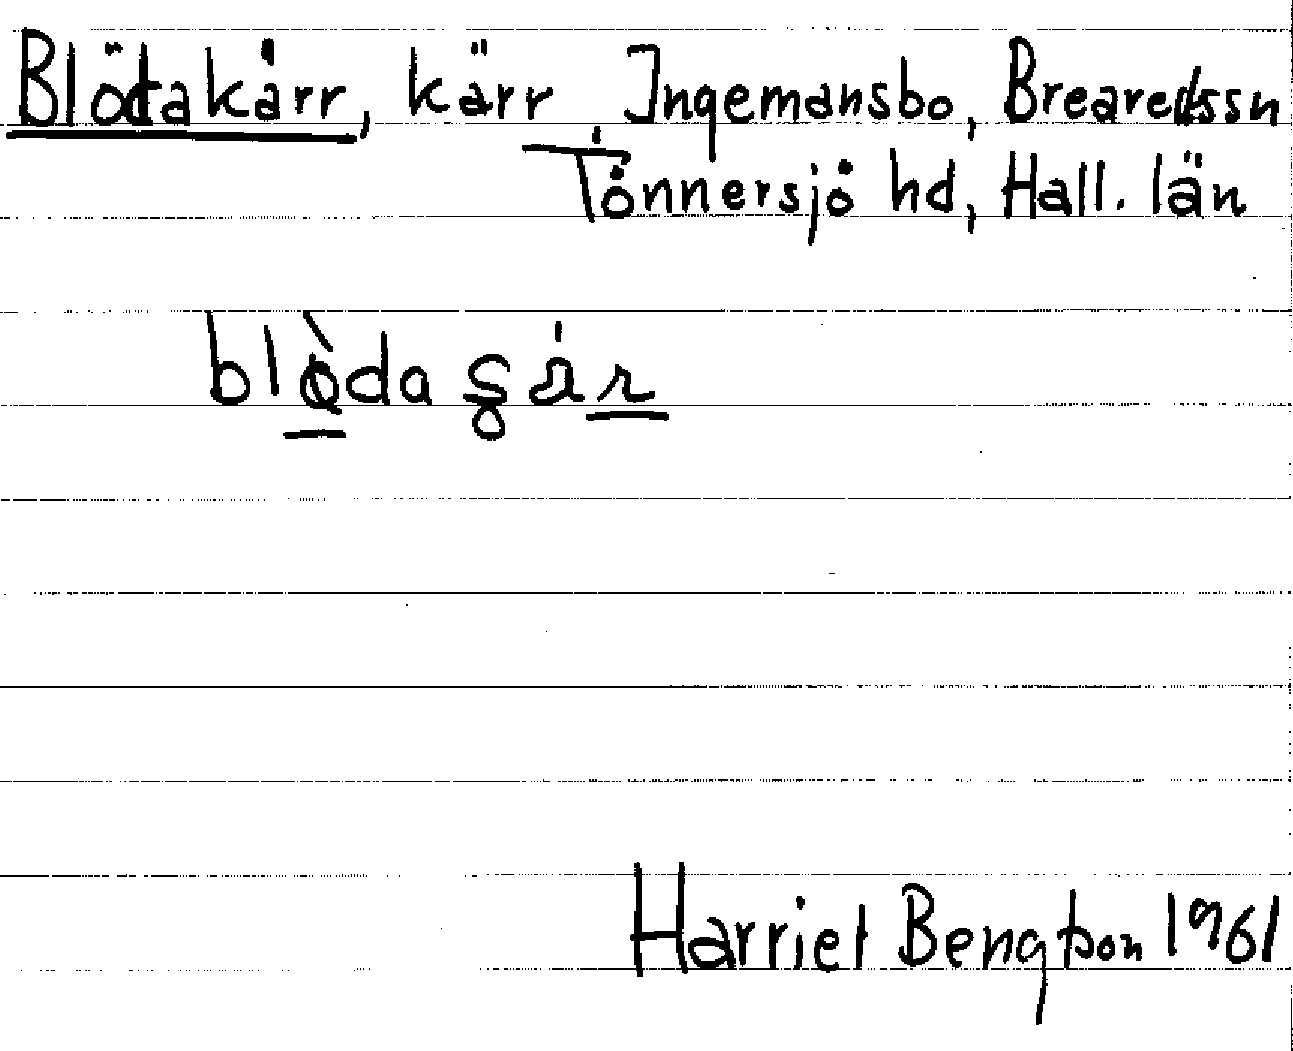 Blötakärr, kärr Ingemansbo, Brearedssn
Tönnersjö hd, Hall. län
blø̀da gár
Harriet Bengtson 1961